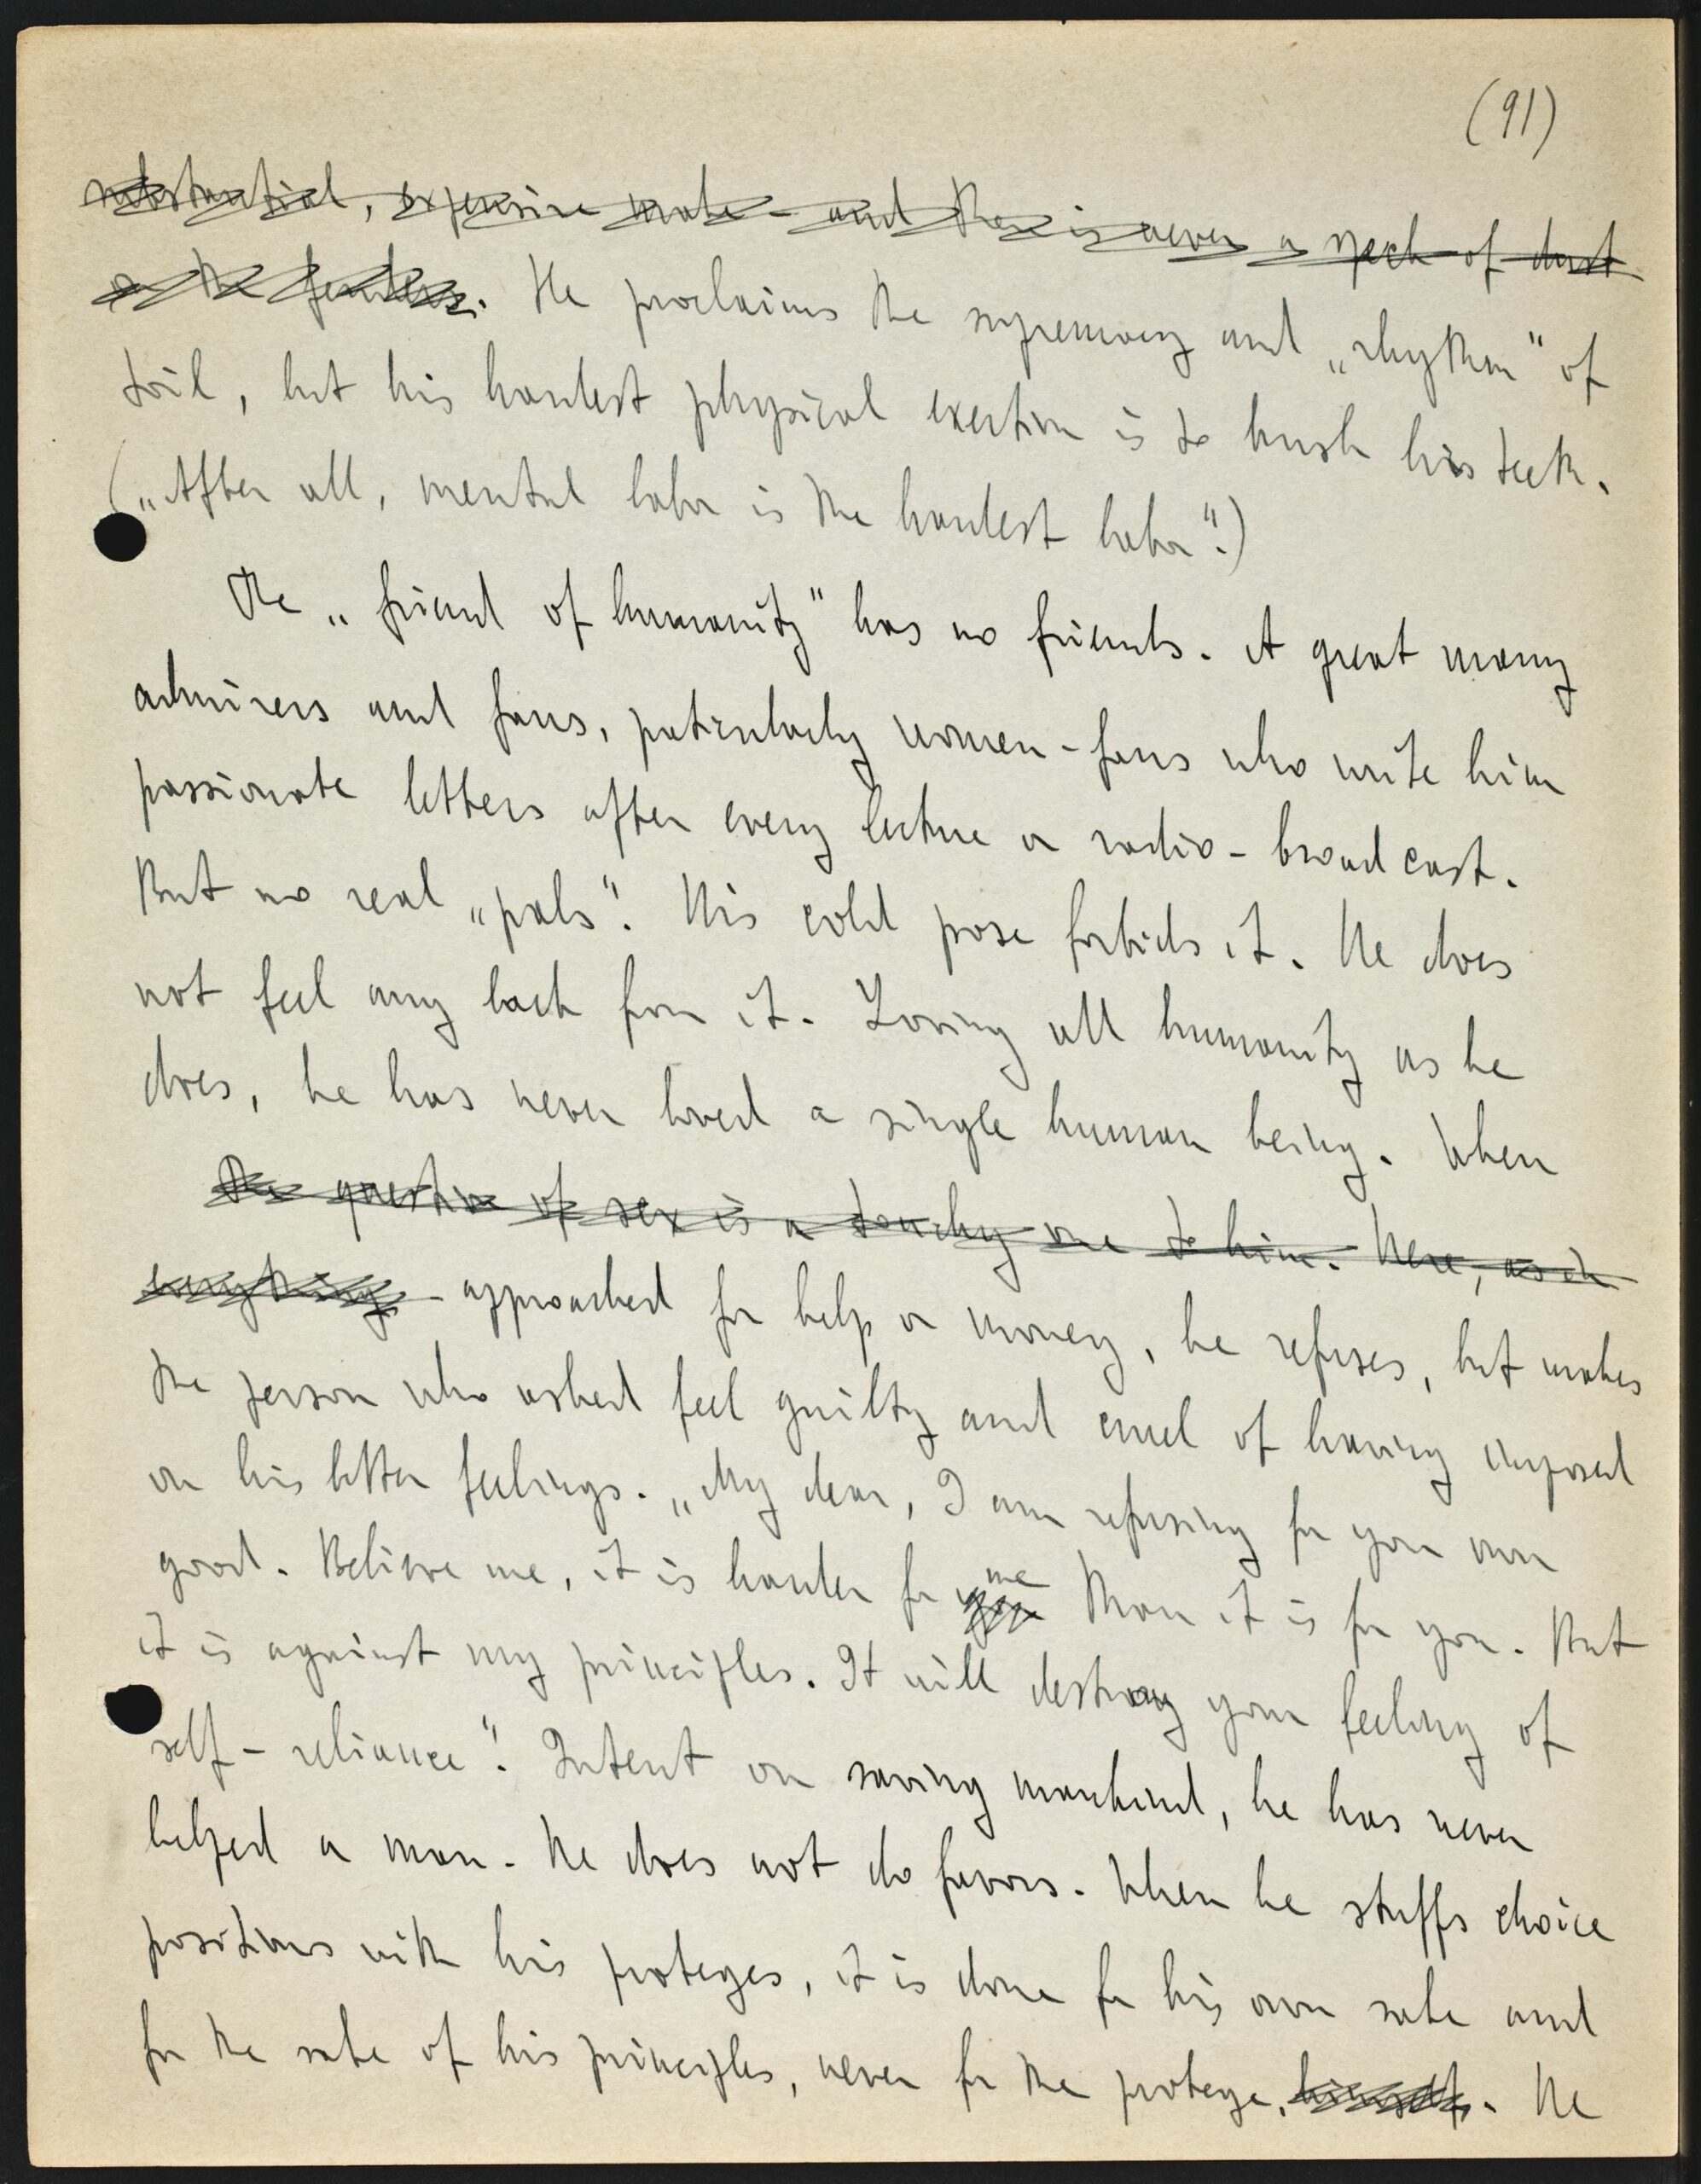 (91)
substantial, expensive make - and there is never a speck of dust
on the fenders. He proclaims the supremacy and „rhythm" of
toil, but his hardest physical exertion is to brush his teeth.
(„After all, mental labor is the hardest labor".)
The „friend of humanity" has no friends. A great many
admirers and fans, paticularly women-fans who write him
passionate letters after every lecture or radio-broadcast.
But no real „pals". His cold pose forbids it. He does
not feel any lack from it. Loving all humanity as he
does, he has never loved a single human being. When
The question of sex is a touchy one to him. Here, as in
everything - approached for help or money, he refuses, but makes
the person who asked feel guilty and cruel of having imposed
on his better feelings. „My dear, I am refusing for your own
good. Believe me, it is harder for you me than it is for you. But
it is against my principles. It will destroy your feeling of
self-reliance". Intent on saving mankind, he has never
helped a man. He does not do favors. When he stuffs choice
positions with his proteges, it is done for his own sake and
for the sake of his principles, never for the protege, himself. He